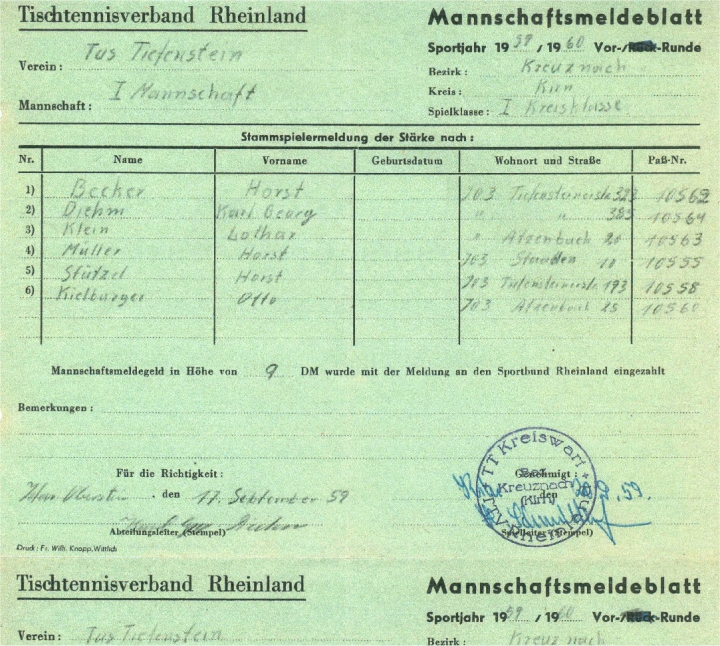 Tischtennisverband Rheinland
Mannschaftsmeldeblatt
Sportjahr 1959 / 1960 Vor-/Rück-Runde
Verein: Tus Tiefenstein
Bezirk: Kreuznach
Kreis: Kirn
Mannschaft: I Mannschaft
Spielklasse: I Kreisklasse
Stammspielermeldung der Stärke nach:
Nr. Name Vorname Geburtsdatum Wohnort und Straße Paß-Nr.
1) Becker Horst 703 Tiefensteinerstr. 323 10562
2) Diehm Karl Georg " " 385 10564
3) Klein Lothar " Atzenbach 20 10563
4) Müller Horst 703 Stauden 10 10555
5) Stützel Horst 703 Tiefensteinerstr. 193 10558
6) Kielburger Otto 703 Atzenbach 25 10560
Mannschaftsmeldegeld in Höhe von 9 DM wurde mit der Meldung an den Sportbund Rheinland eingezahlt
Bemerkungen:
Für die Richtigkeit:
Genehmigt:
Idar-Oberstein, den 17. September 59
den 59.
TT Kreiswart
Bez. Kreuznach
(Kirn)
TTV-Rheinland
Abteilungsleiter (Stempel)
Spielleiter (Stempel)
Druck: Fr. Wilh. Knopp, Wittlich
Tischtennisverband Rheinland
Mannschaftsmeldeblatt
Sportjahr 1959 / 1960 Vor-/Rück-Runde
Verein: Tus Tiefenstein
Bezirk: Kreuznach